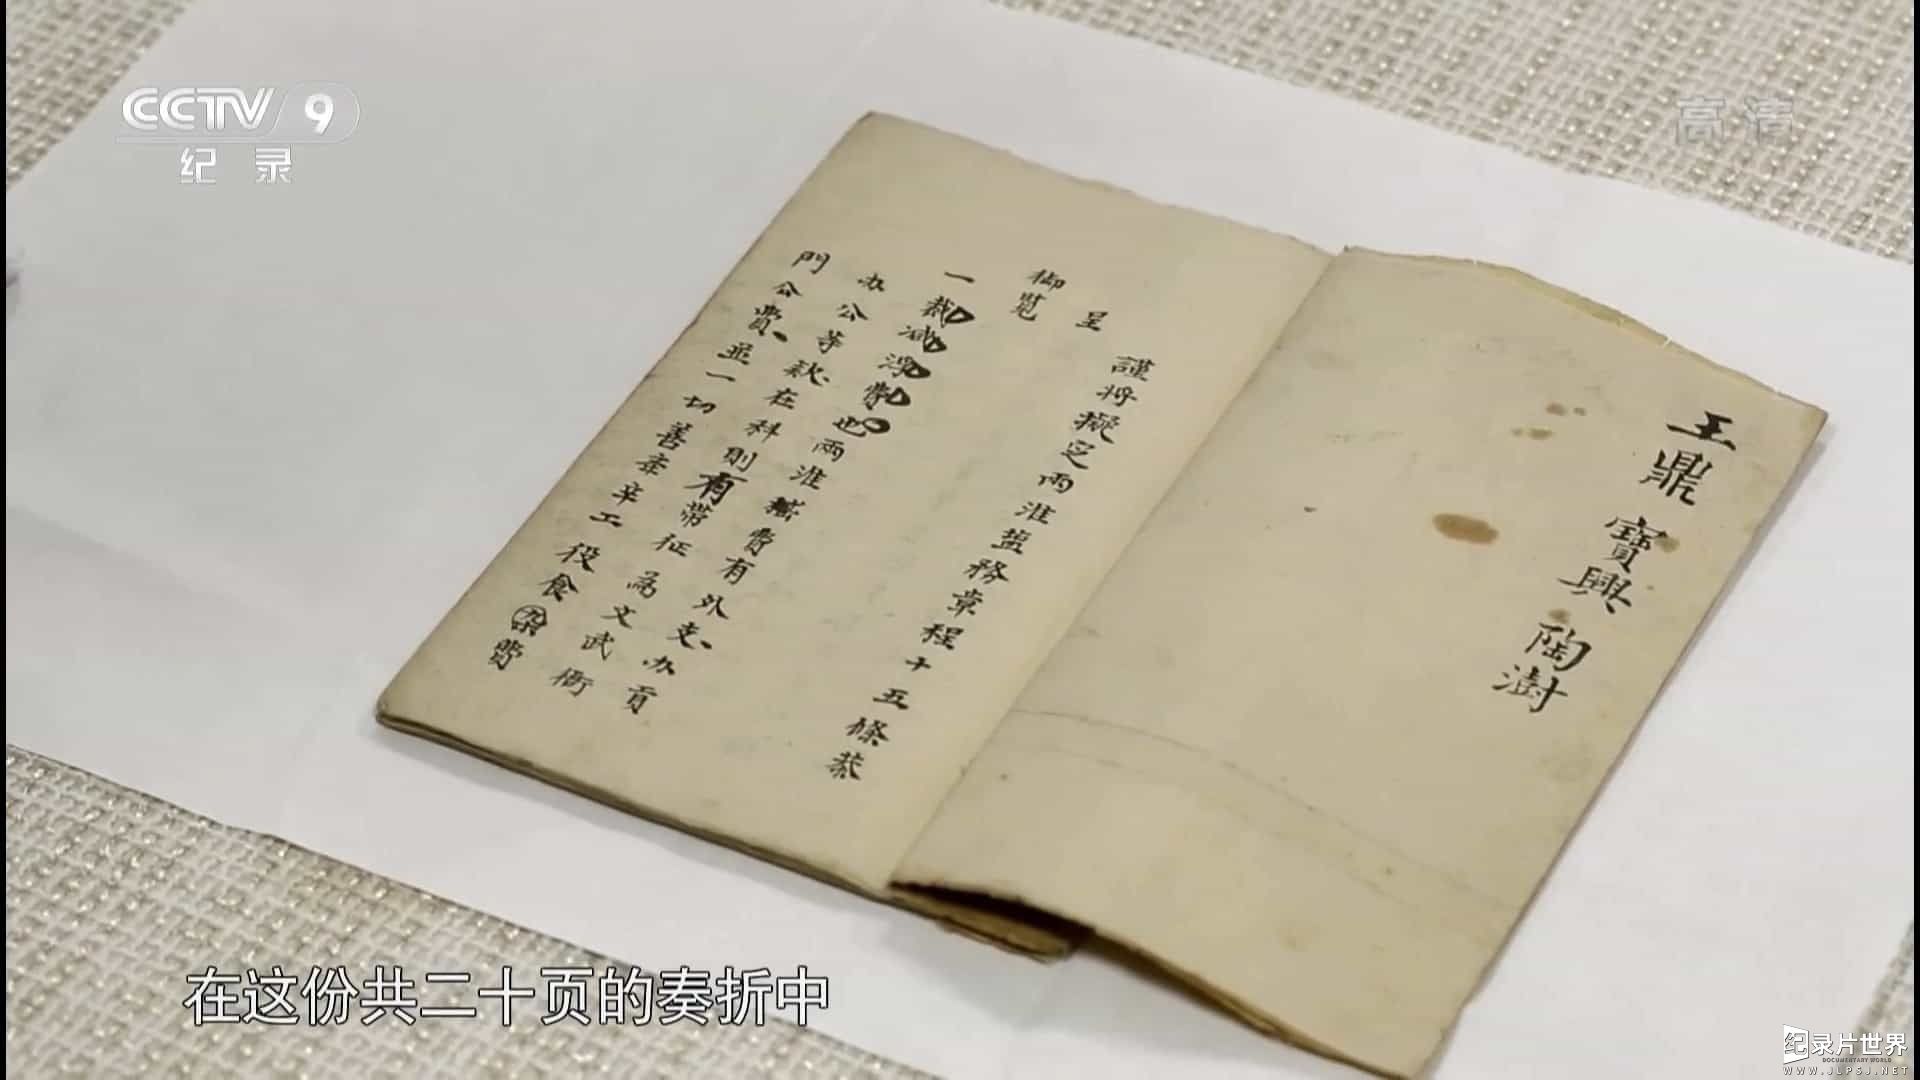 CCTV 9
纪录
高清
王鼎 寶興 陶澍
謹將擬定兩淮盐務章程十五條恭
呈
御覧
一裁減浮費也兩淮
費有外支办貢
办公等款在科則有帶征為文武衙
門公費並一切善舉辛工役食雜費
在这份共二十页的奏折中
纪录片世界
DOCUMENTARY WORLD
WWW.JLPSJ.NET